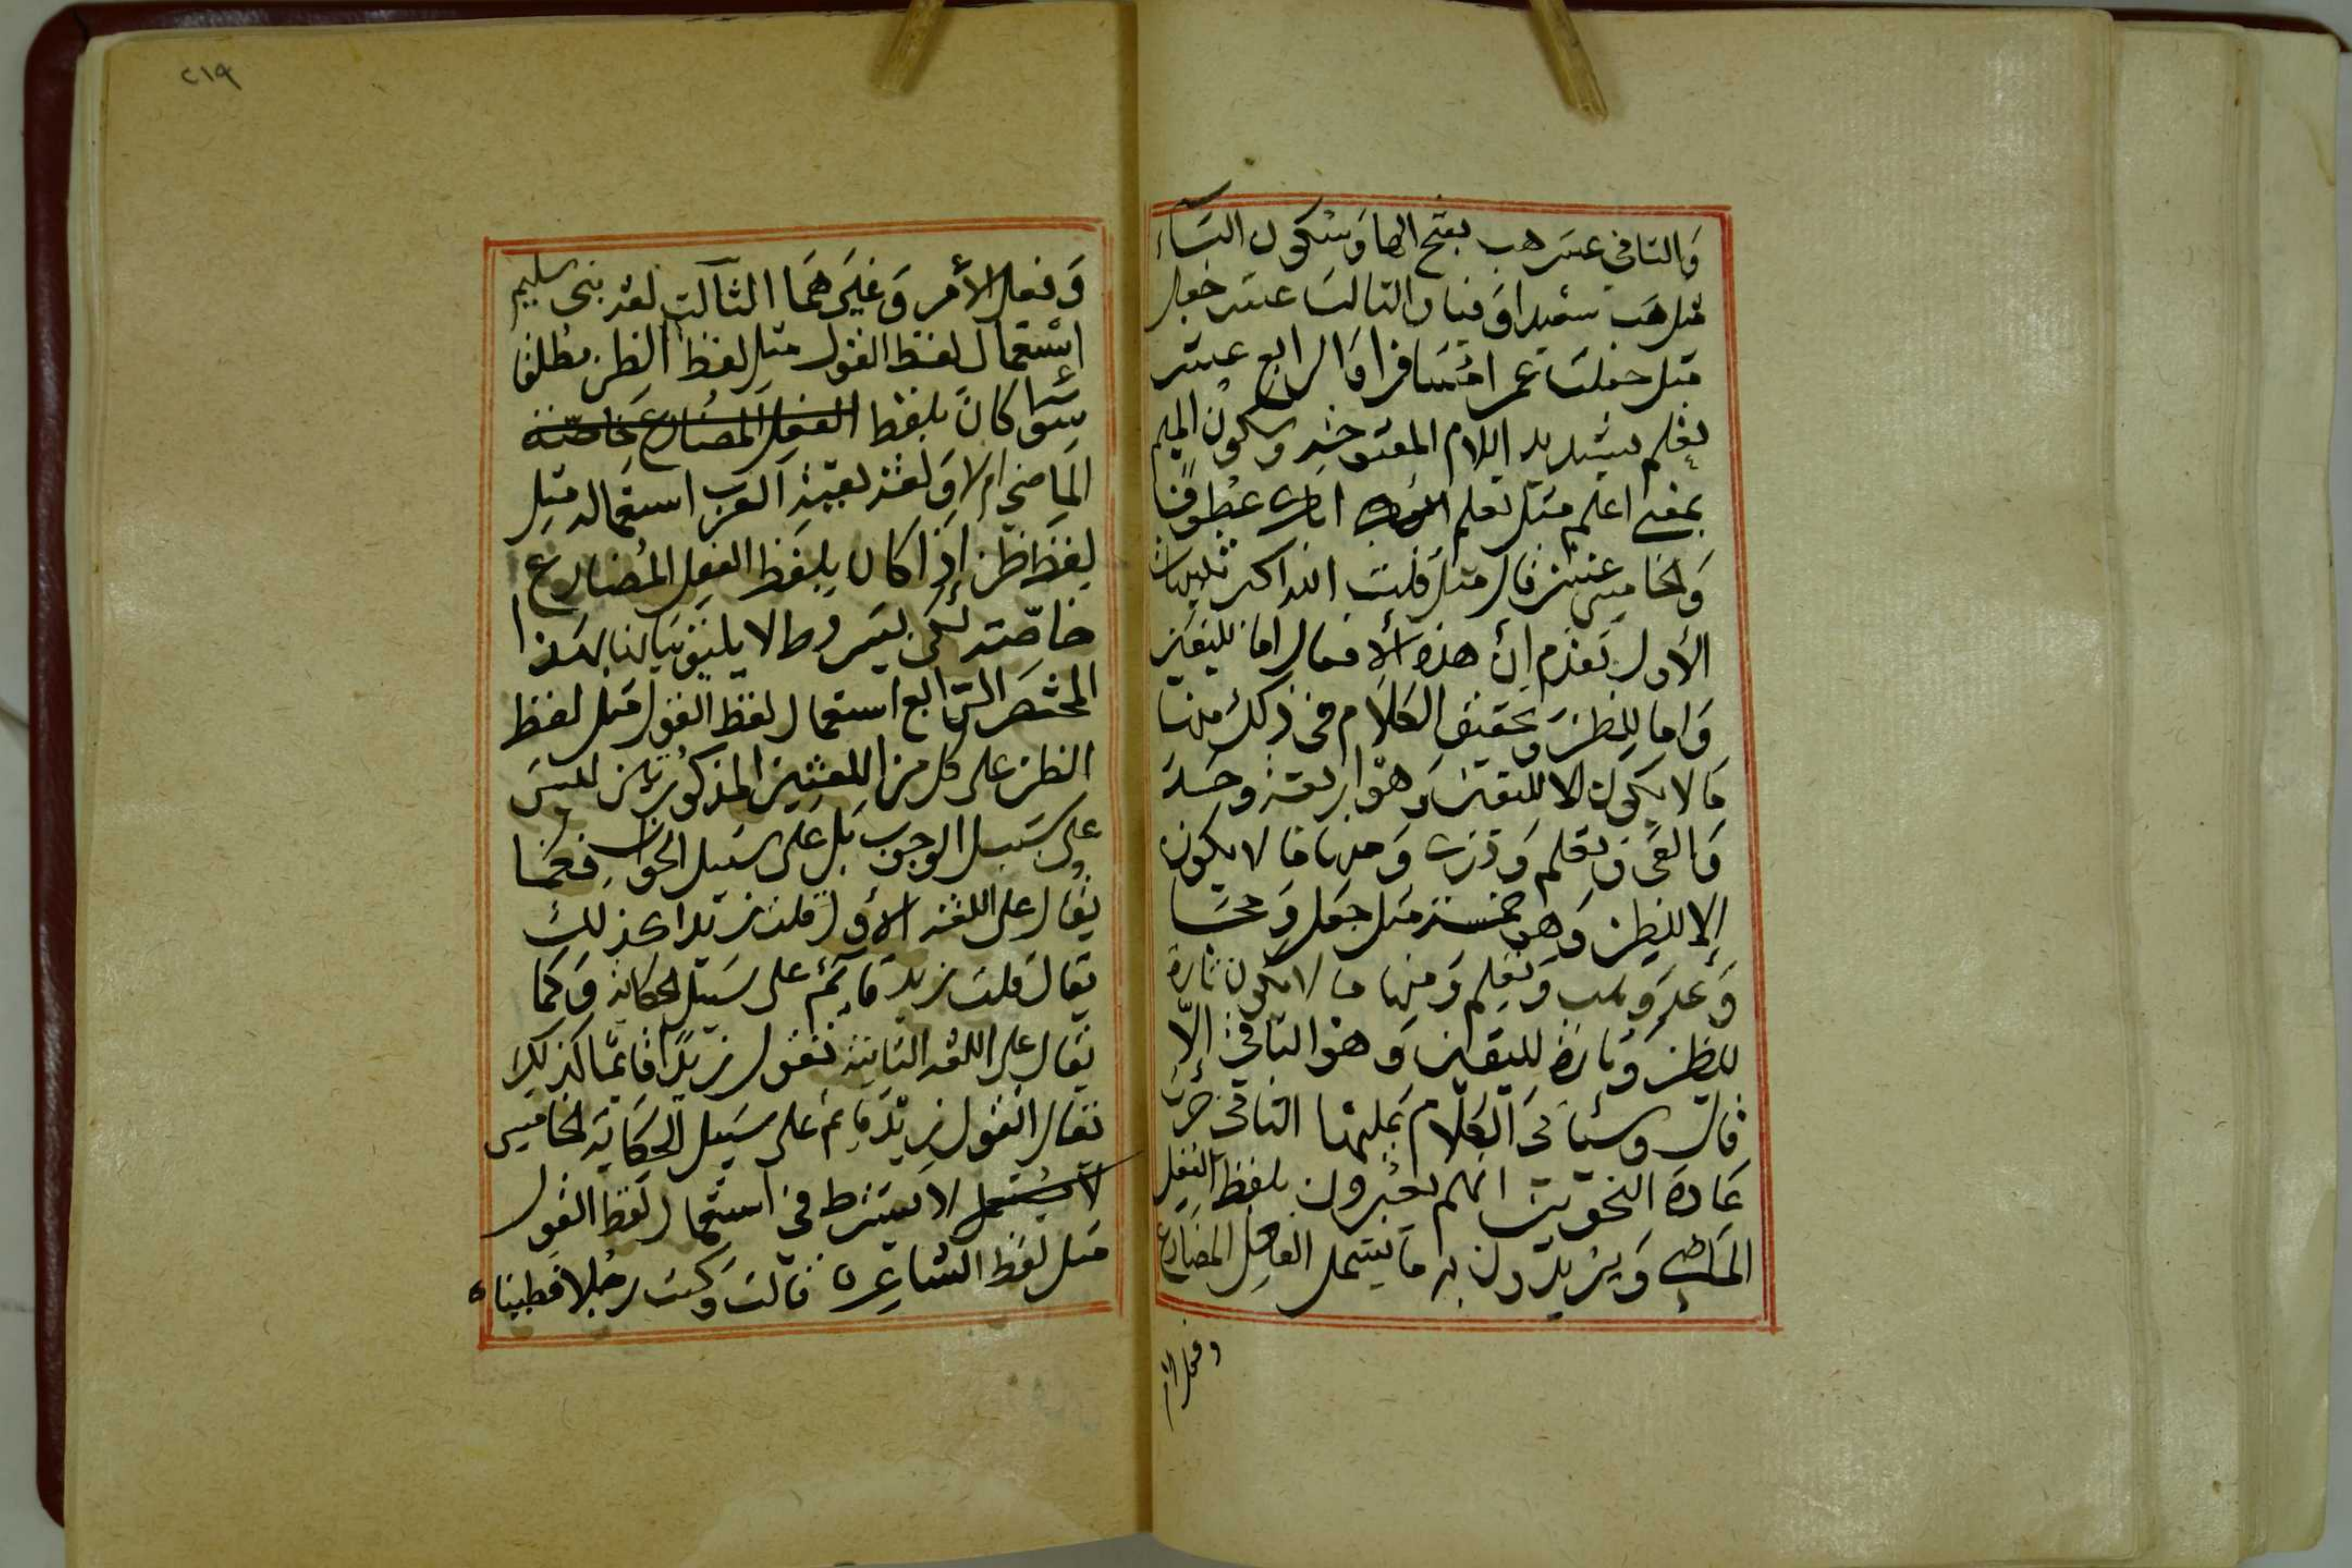 والثاني عشر هب بفتح الها وسكون الباء
مثل هب سعيدا وفيا والثالث عشر جعل
مثل جعلت عمرا مسافرا والرابع عشر
تعلم بتشديد اللام المفتوحة وسكون الميم
بمعنى اعلم مثل تعلم اباك عطوفا
والخامس عشر قال مثل قلت
الأول تقدم ان هذه الافعال اما لليقين
واما للظن وتحقيق الكلام في ذلك منها
ما لا يكون الا لليقين وهو اربعة وجد
والفى وتعلم ودرى ومنها ما لا يكون
إلا للظن وهو خمسة مثل جعل وحجا
وعد وهب وزعم ومنها ما لا يكون تارة
للظن وتارة لليقين وهو الباقي إلا
قال وسيأتي الكلام عليها الثاني جرت
عادة النحويين انهم يعبرون بلفظ الفعل
الماضي ويريدون به ما يشمل الفعل المضارع
وفعل الأمر
٢١٩
وفعل الأمر وغيرهما الثالث لغة بني سليم
استعمال لفظ القول مثل لفظ الظن مطلقا
سواء كان بلفظ الفعل المضارع خاصة
الماضي ام لا ولغة بقية العرب استعماله مثل
لفظ ظن إذا كان بلفظ الفعل المضارع
خاصة لكن بشروط لا يليق بيانها بهذا
المختصر الرابع استعمال لفظ القول مثل لفظ
الظن على كل من اللغتين المذكورتين ليس
على سبيل الوجوب بل على سبيل الجواز فكما
يقال على اللغة الأولى قلت زيدا كذلك
يقال قلت زيد قائم على سبيل الحكاية وكما
يقال على اللغة الثانية تقول زيدا قائما كذلك
يقال اتقول زيد قائم على سبيل الحكاية الخامس
لا يستعمل لا يشترط في استعمال لفظ القول
مثل لفظ الشاعر ه قالت وكنت رجلا فطينا ه